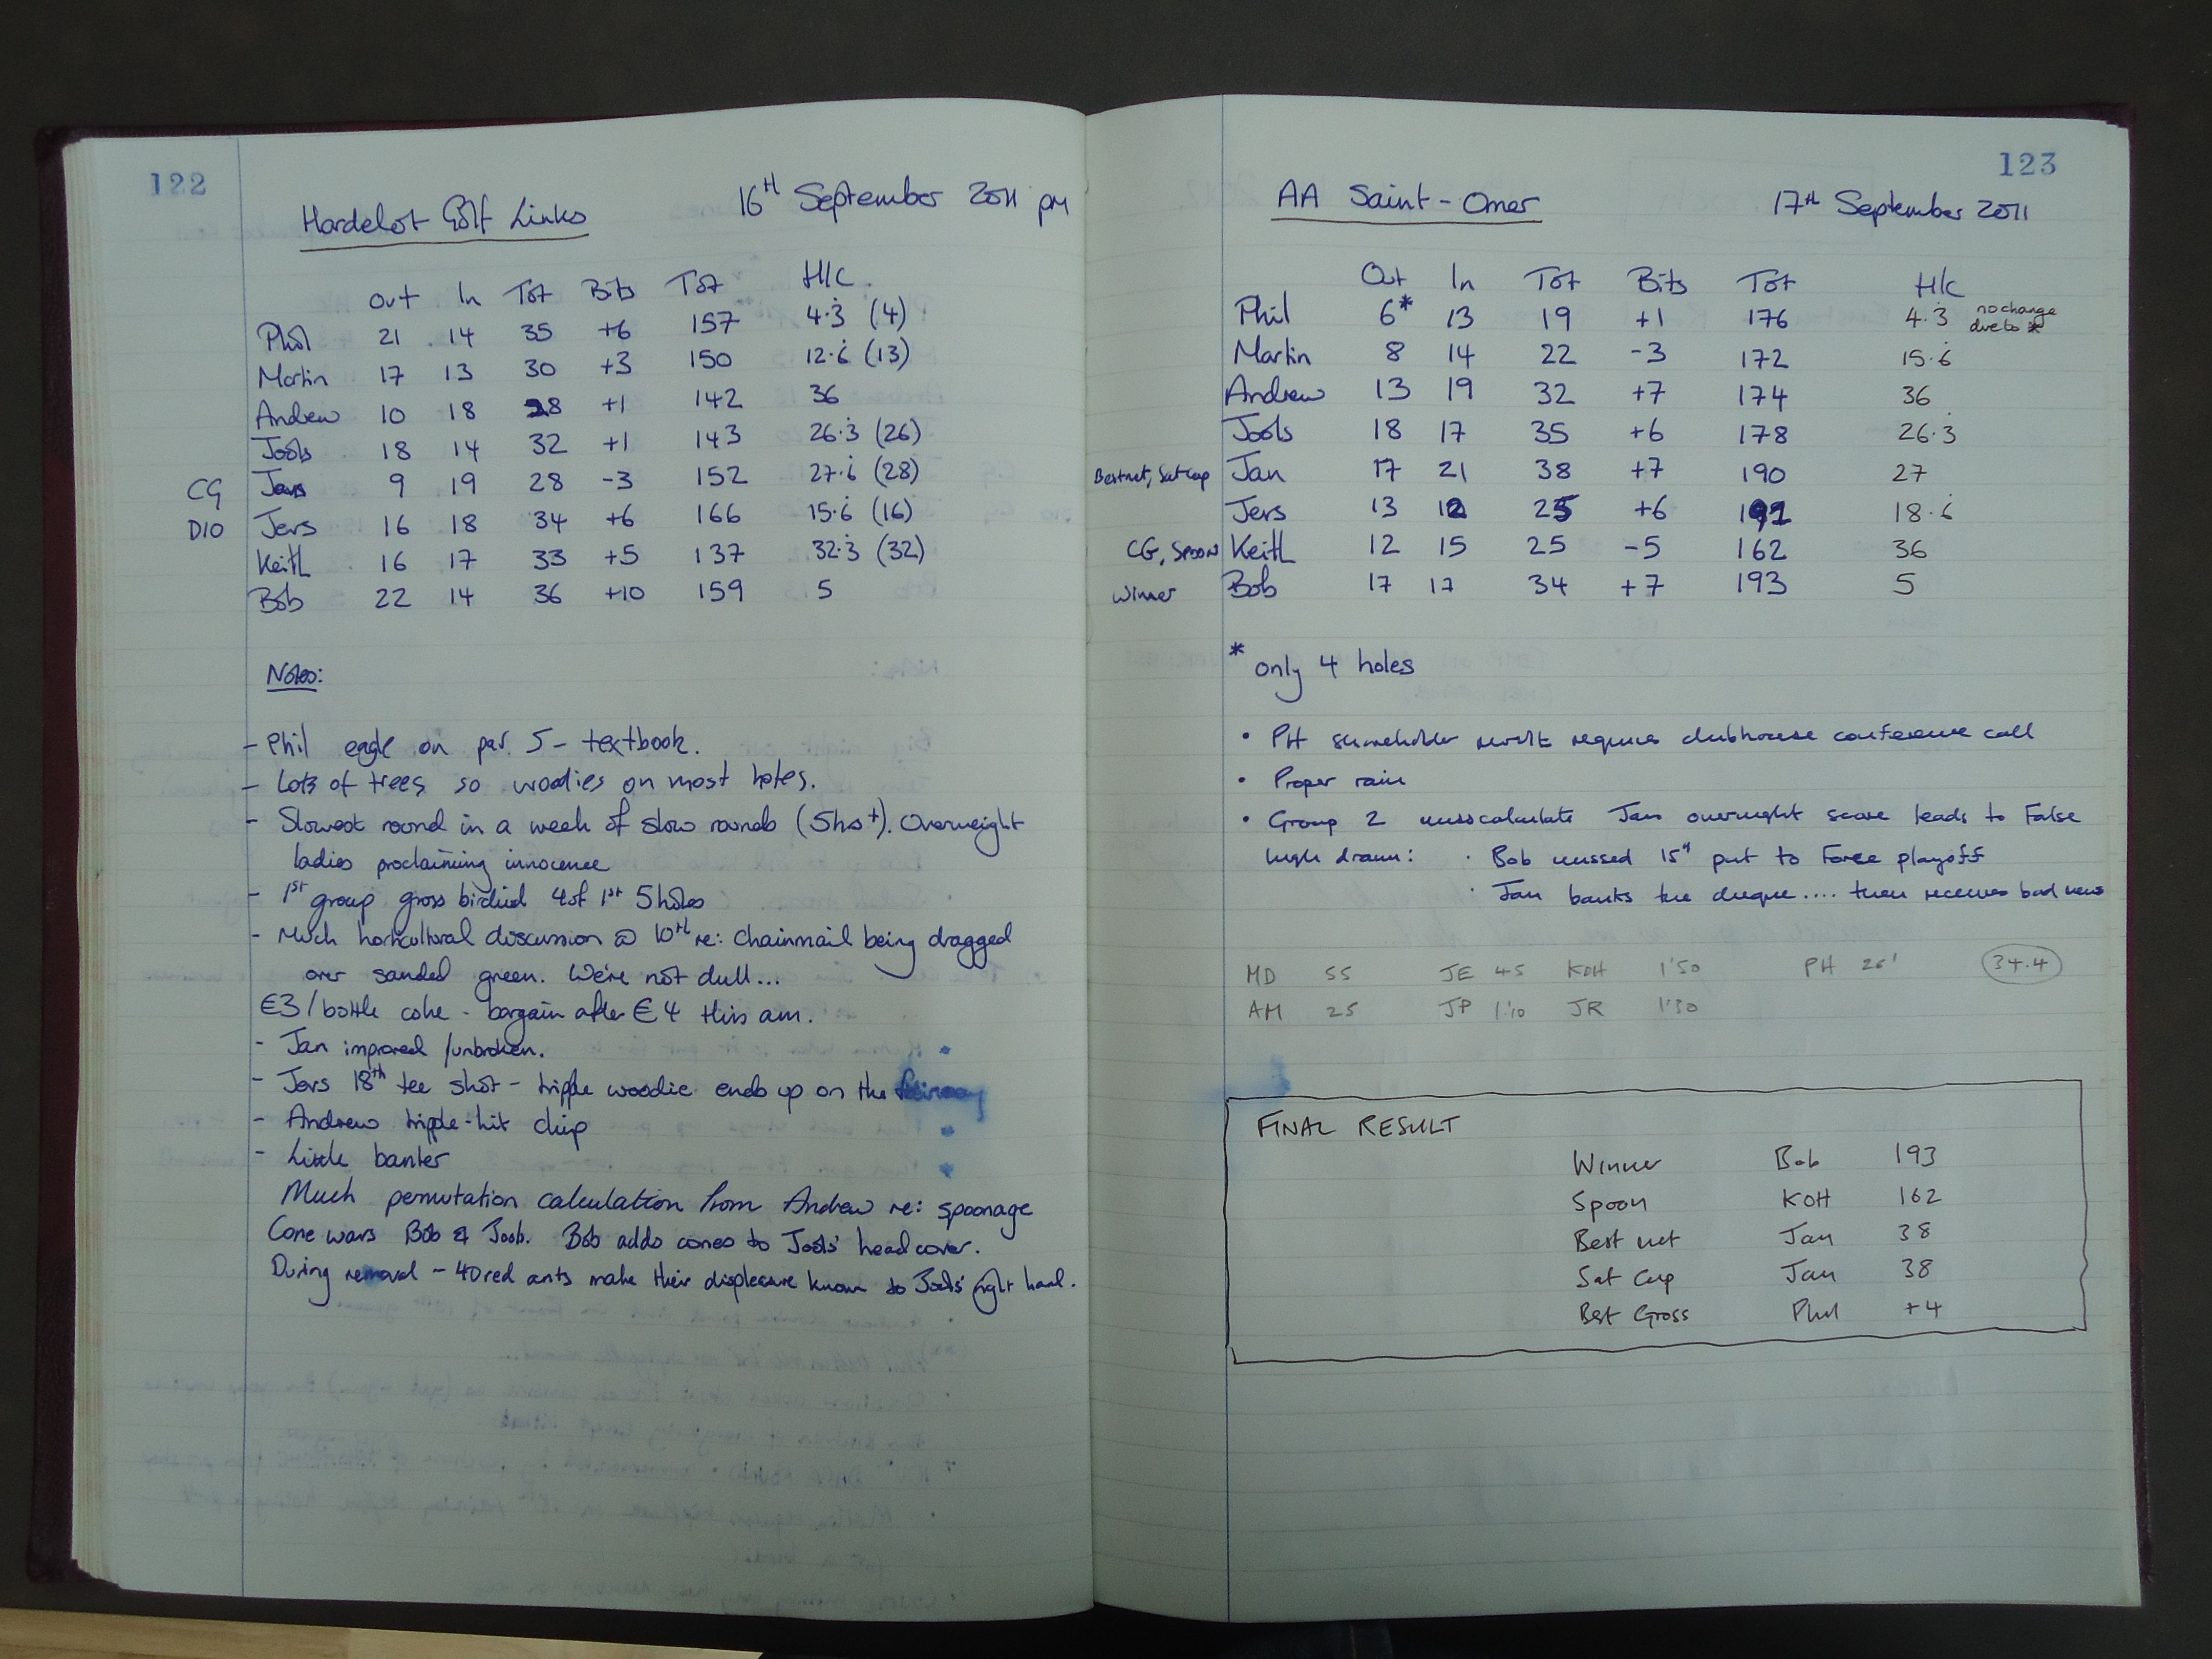 122
Hardelot Golf Links 16TH September 2011 pm
Out In Tot Bits Tot H/C
Phil 21 14 35 +6 157 4.3 (4)
Martin 17 13 30 +3 150 12.6 (13)
Andrew 10 18 28 +1 142 36
Jools 18 14 32 +1 143 26.3 (26)
CG Jan 9 19 28 -3 152 27.6 (28)
D10 Jers 16 18 34 +6 166 15.6 (16)
Keith 16 17 33 +5 137 32.3 (32)
Bob 22 14 36 +10 159 5
Notes:
- Phil eagle on par 5 - textbook.
- Lots of trees so woodies on most holes.
- Slowest round in a week of slow rounds (5hrs+). Overweight
ladies proclaiming innocence
- 1st group gross birdied 4 of 1st 5 holes
- Much horticultural discussion @ 10th re: chainmail being dragged
over sanded green. We're not dull...
€3/bottle coke - bargain after €4 this am.
- Jan improved /unbroken.
- Jers 18th tee shot - triple woodie ends up on the fairway
- Andrew triple-hit chip
- Little banter
Much permutation calculation from Andrew re: spoonage
Cone wars Bob & Jools. Bob adds cones to Jools' headcover.
During removal - 40 red ants make their displeasure known to Jools' right hand.
123
AA Saint-Omer 17th September 2011
Out In Tot Bits Tot H/C
Phil 6* 13 19 +1 176 4.3 no change
due to *
Martin 8 14 22 -3 172 15.6
Andrew 13 19 32 +7 174 36
Jools 18 17 35 +6 178 26.3
Best net, Sat cup Jan 17 21 38 +7 190 27
Jers 13 12 25 +6 191 18.6
CG, SPOON Keith 12 15 25 -5 162 36
Winner Bob 17 17 34 +7 193 5
* only 4 holes
• PH shareholder revolt requires clubhouse conference call
• Proper rain
• Group 2 miscalculate Jan overnight score leads to false
high drama: · Bob missed 15" put to force playoff
· Jan banks the cheque.... then receives bad news
MD 55 JE 45 KOH 1'50 PH 26' 34.4
AM 25 JP 1'10 JR 1'30
FINAL RESULT
Winner Bob 193
Spoon KOH 162
Best net Jan 38
Sat Cup Jan 38
Best Gross Phil +4